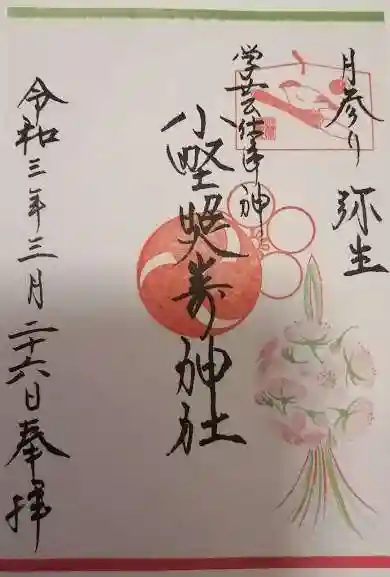 月参り 弥生
学芸仕事神
小野照崎神社
令和三年三月二十六日奉拝